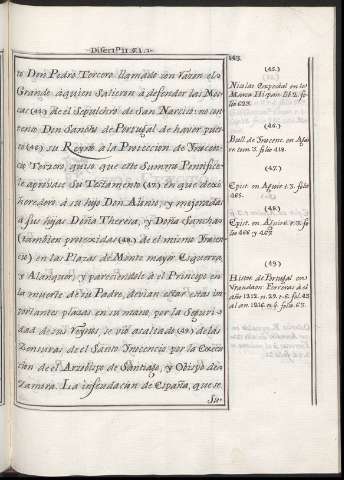 Disert.ⁿ II. §. I.
to Don Pedro Tercero llamado con razon el
Grande à quien Salieron à defender las Mos-
cas (45.) de el Sepulchro de San Narciso: no con-
tento Don Sancho de Portugal de haver pues-
to (46.) su Reyno à la Proteccion de Inocen-
cio Tercero, quiso que este Summo Pontifi-
ce aprovase su Testamento (47.) en que dexò
heredero à su hijo Don Alonso, y mejoradas
a sus hijas Doña Theresa, y Doña Sancha
(tambien protexidas (48.) de el mismo Inocen-
cio) en las Plazas de Monte mayor, Esguerra,
y Alanquer; y pareciendole à el Principe en
la muerte de su Padre, devian estar estas im-
portantes plazas en su mano, por la Seguri-
dad de sus Reynos, se viò asaltado (49.) de las
Zensuras de el Santo Inocencio por la Execu-
cion de el Arzobispo de Santiago, y Obispo de
Zamora. La infeudacion de España, que se
Su-
(45.)
Nicolas Especial en la
Marca Hispan. lib. 2. fo-
lio 623.
(46.)
Bull. de Inocenc. en Agui-
rre tom. 3. folio 414.
(47.)
Epist. en Aguir. t. 3. folio
465.
(48.)
Epist. en Aguirre t. 3. fo-
lio 468. y 469.
(49.)
Histor. de Portugal en
Brandaon Ferreras à el
año 1212. n. 29. t. 6. fol. 43
al an. 1216. n. 9. folio 63.